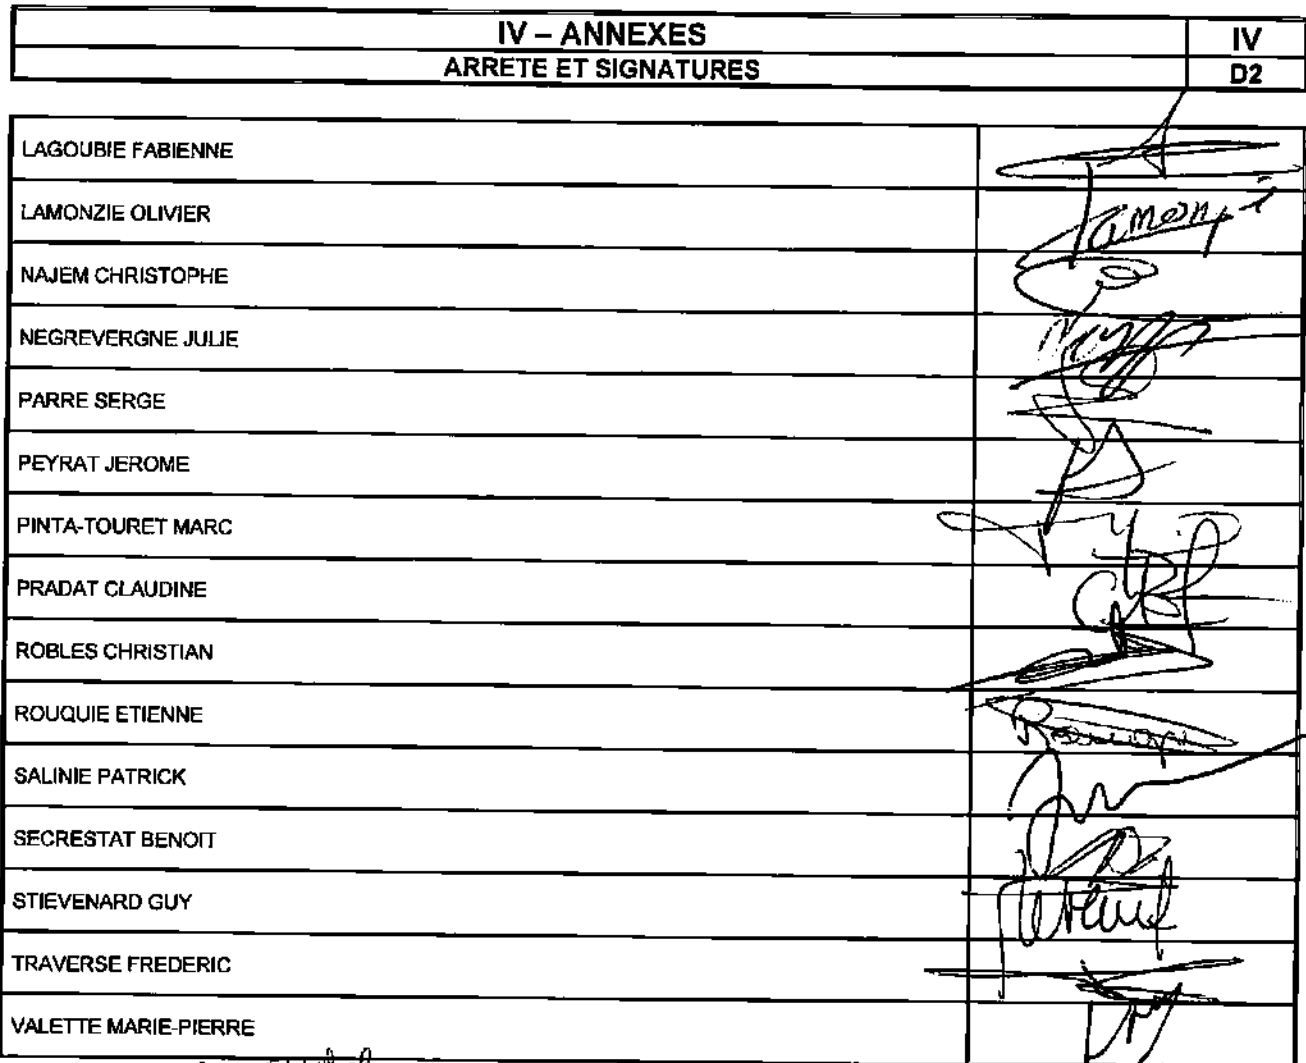 IV – ANNEXES IV
ARRETE ET SIGNATURES D2
LAGOUBIE FABIENNE
LAMONZIE OLIVIER
NAJEM CHRISTOPHE
NEGREVERGNE JULIE
PARRE SERGE
PEYRAT JEROME
PINTA-TOURET MARC
PRADAT CLAUDINE
ROBLES CHRISTIAN
ROUQUIE ETIENNE
SALINIE PATRICK
SECRESTAT BENOIT
STIEVENARD GUY
TRAVERSE FREDERIC
VALETTE MARIE-PIERRE